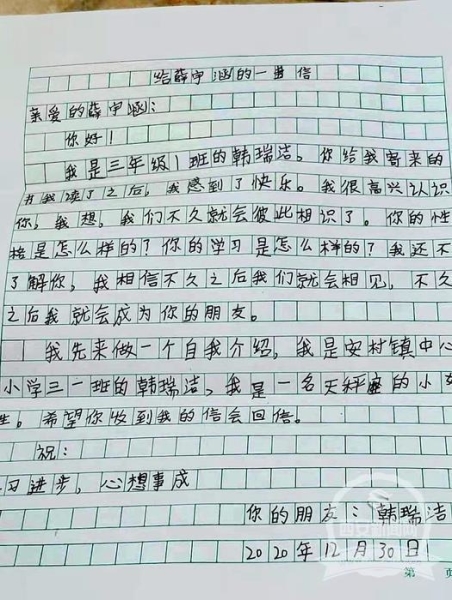 给薛宇涵的一封信
亲爱的薛宇涵:
你好!
我是三年级1班的韩瑞洁。你给我寄来的
书我读了之后,我感到了快乐。我很高兴认识
你,我想,我们不久就会彼此相识了。你的性
格是怎么样的?你的学习是怎么样的?我还不
了解你,我相信不久之后我们就会相见,不久
之后我就会成为你的朋友。
我先来做一个自我介绍,我是安村镇中心
小学三一班的韩瑞洁,我是一名天秤座的小女
生。希望你收到我的信会回信。
祝:
习进步,心想事成
你的朋友:韩瑞洁
2020年12月30日
第 页